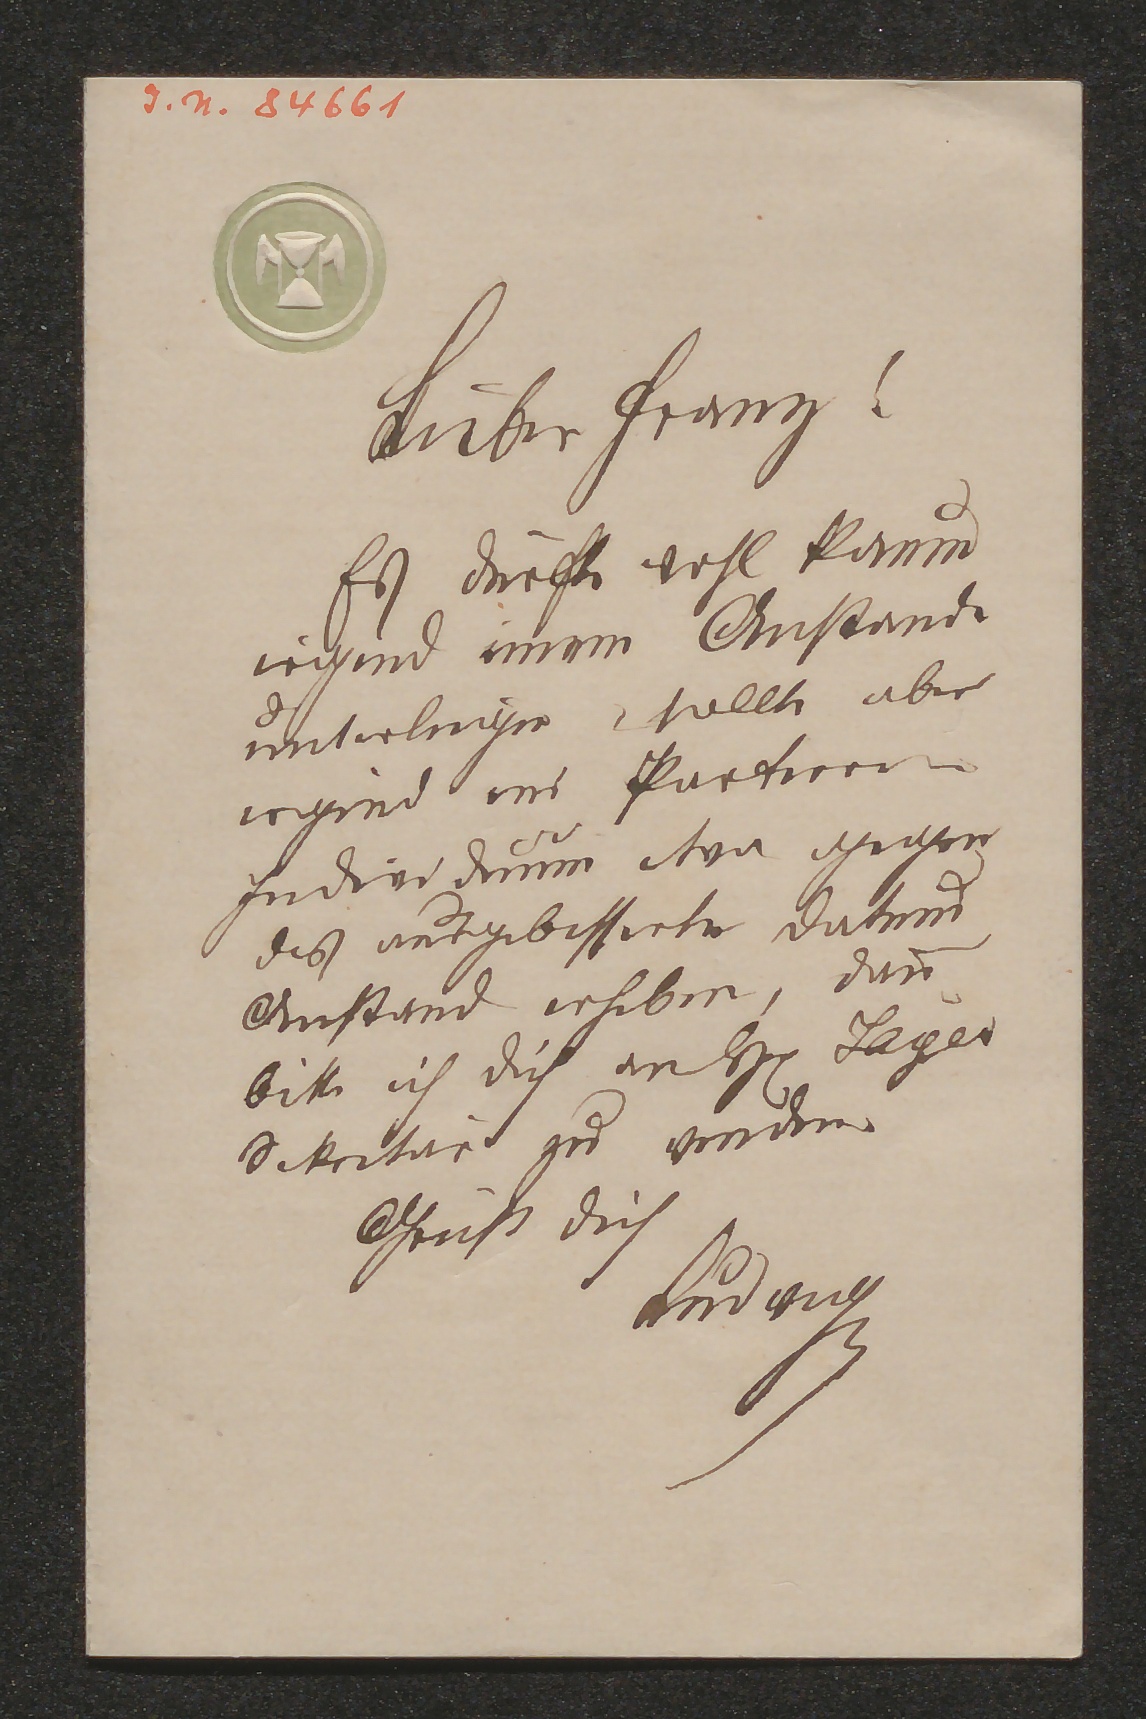 I. N. 84661
Lieber Franz!
Es dürfte wohl kaum
irgend einem Anstande
unterliegen, sollte aber
irgend ein
Individuum etwa gegen
das ausgebesserte Datum
Anstand erheben, dañ
bitte ich dich an H. Jäger
Sekretär zu wenden.
Grüßt dich
Ludwig